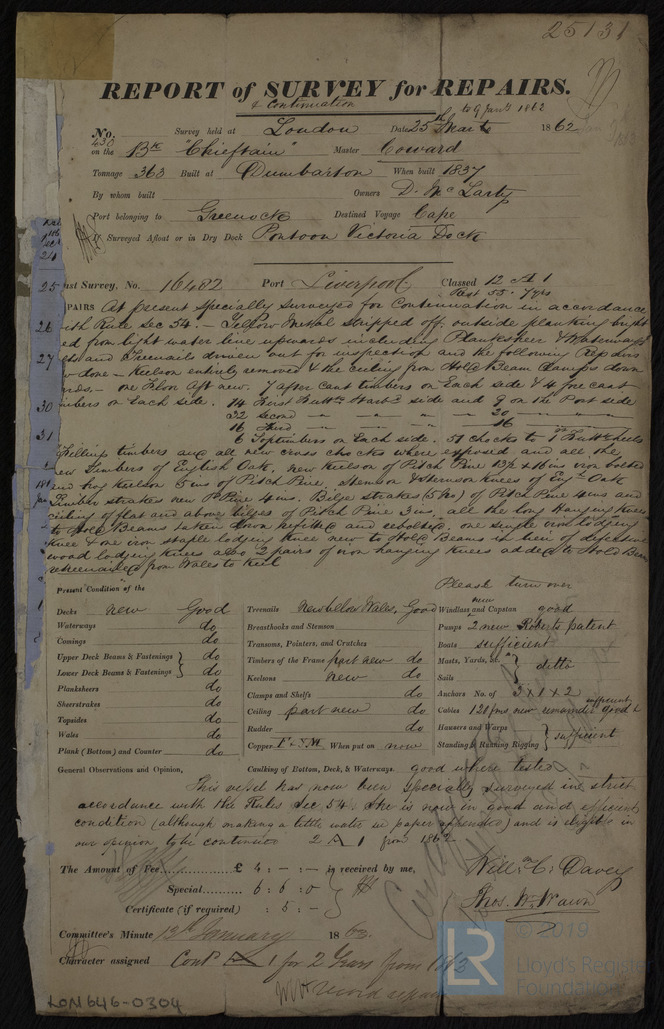 25131
REPORT of SURVEY for REPAIRS.
& Continuation
to 9 Jany 1862
No. 430 Survey held at London Date 25th March 1862
on the Bk "Chieftain" Master Coward
Tonnage 363 Built at Dumbarton When built 1837
By whom built Owners D. McLarty
Port belonging to Greenock Destined Voyage Cape
If Surveyed Afloat or in Dry Dock Pontoon Victoria Dock
Last Survey, No. 16482 Port Liverpool Classed 12 A 1
Rest 55. 7 yrs
24
25
26
27
30
31
REPAIRS At present Specially Surveyed for Continuation in accordance
with Rule Sec 54. — Yellow Metal stripped off: outside planking bright
ed from light water line upwards including Planksheer & Waterways
and Treenails driven out for inspection and the following Repairs
done - Keelson entirely removed & the ceiling from Hold Beam Clamps down
- one Floor aft new. 7 after Cant timbers on Each side & 4 fore cant
timbers on Each Side. 14 First Futts Starbd side and 9 on the Port side
22 Second " " " 20 " "
16 Third " " " 16 " "
6 Toptimbers on Each Side. 51 chocks to 1st Futt heels
Filling timbers and all new cross chocks where exposed and all the
new Timbers of English Oak. new Keelson of Pitch Pine & 16 ins iron bolted
Keelson 5 ins of Pitch Pine. Stemson & Sternson Knees of Engh Oak
Limber strakes new P. Pine 4 ins. Bilge strakes (5 No) of Pitch Pine 4 ins and
ceiling of flat and above bilges of Pitch Pine 3 ins. all the long Hanging Knees
to Hold Beams taken down refitted and rebolted. one single iron lodging
Knee & one iron staple lodging knee new to Hold Beams in lieu of defective
wood lodging Knees also 2 pairs of iron hanging Knees added to Hold Beams
retreenailed from Wales to Keel
Please turn over
Present Condition of the
Decks new Good
Waterways do
Comings do
Upper Deck Beams & Fastenings do
Lower Deck Beams & Fastenings do
Planksheers do
Sheerstrakes do
Topsides do
Wales do
Plank (Bottom) and Counter do
Treenails New below Wales, Good
Breasthooks and Stemson
Transoms, Pointers, and Crutches
Timbers of the Frame part new do
Keelsons new do
Clamps and Shelfs do
Ceiling part new do
Rudder do
Copper F & YM When put on now
Windlass new and Capstan good
Pumps 2 new Roberts patent
Boats sufficient
Masts, Yards, &c.
Sails ditto
Anchors No. of 3 x 1 x 2
Cables 120 fms new remainder good & sufficient
Hausers and Warps
Standing & Running Rigging sufficient
General Observations and Opinion, Caulking of Bottom, Deck, & Waterways good where tested
This vessel has now been specially surveyed in strict
accordance with the Rules Sec 54. She is now in good and efficient
condition (although making a little water in paper appended) and is eligible in
our opinion to be continued 2 A 1 from 1862
The Amount of Fee £ 4 : – : – is received by me,
Special 6 : 6 : 0
Certificate (if required) : 5 : –
Willm C. Davey
Thos. W. Wawn
Committee's Minute 13th January 1863.
Character assigned Contd A 1 for 2 Years from 1862
record repairs
LON646-0304
LR
© 2019
Lloyd's Register
Foundation